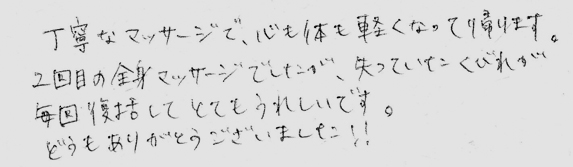 丁寧なマッサージで、心も体も軽くなって帰ります。
2回目の全身マッサージでしたが、失っていたくびれが
毎回復活してとてもうれしいです。
どうもありがとうございました!!